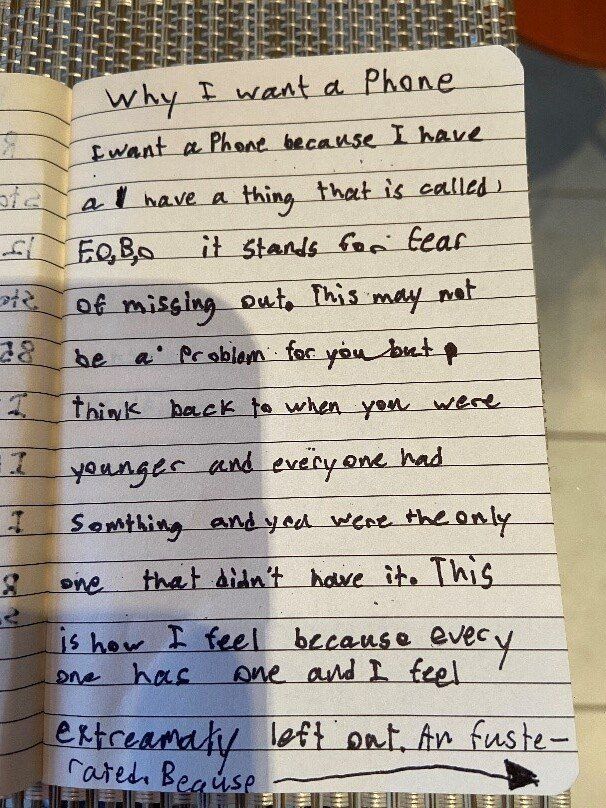 Why I want a Phone
I want a Phone because I have
a I have a thing that is called,
F.O,B,O it stands for fear
of missing out. This may not
be a problem for you but
think back to when you were
younger and everyone had
Somthing and you were the only
one that didn't have it. This
is how I feel because every
one has one and I feel
extreamaty left out. An fuste-
rated. Beause